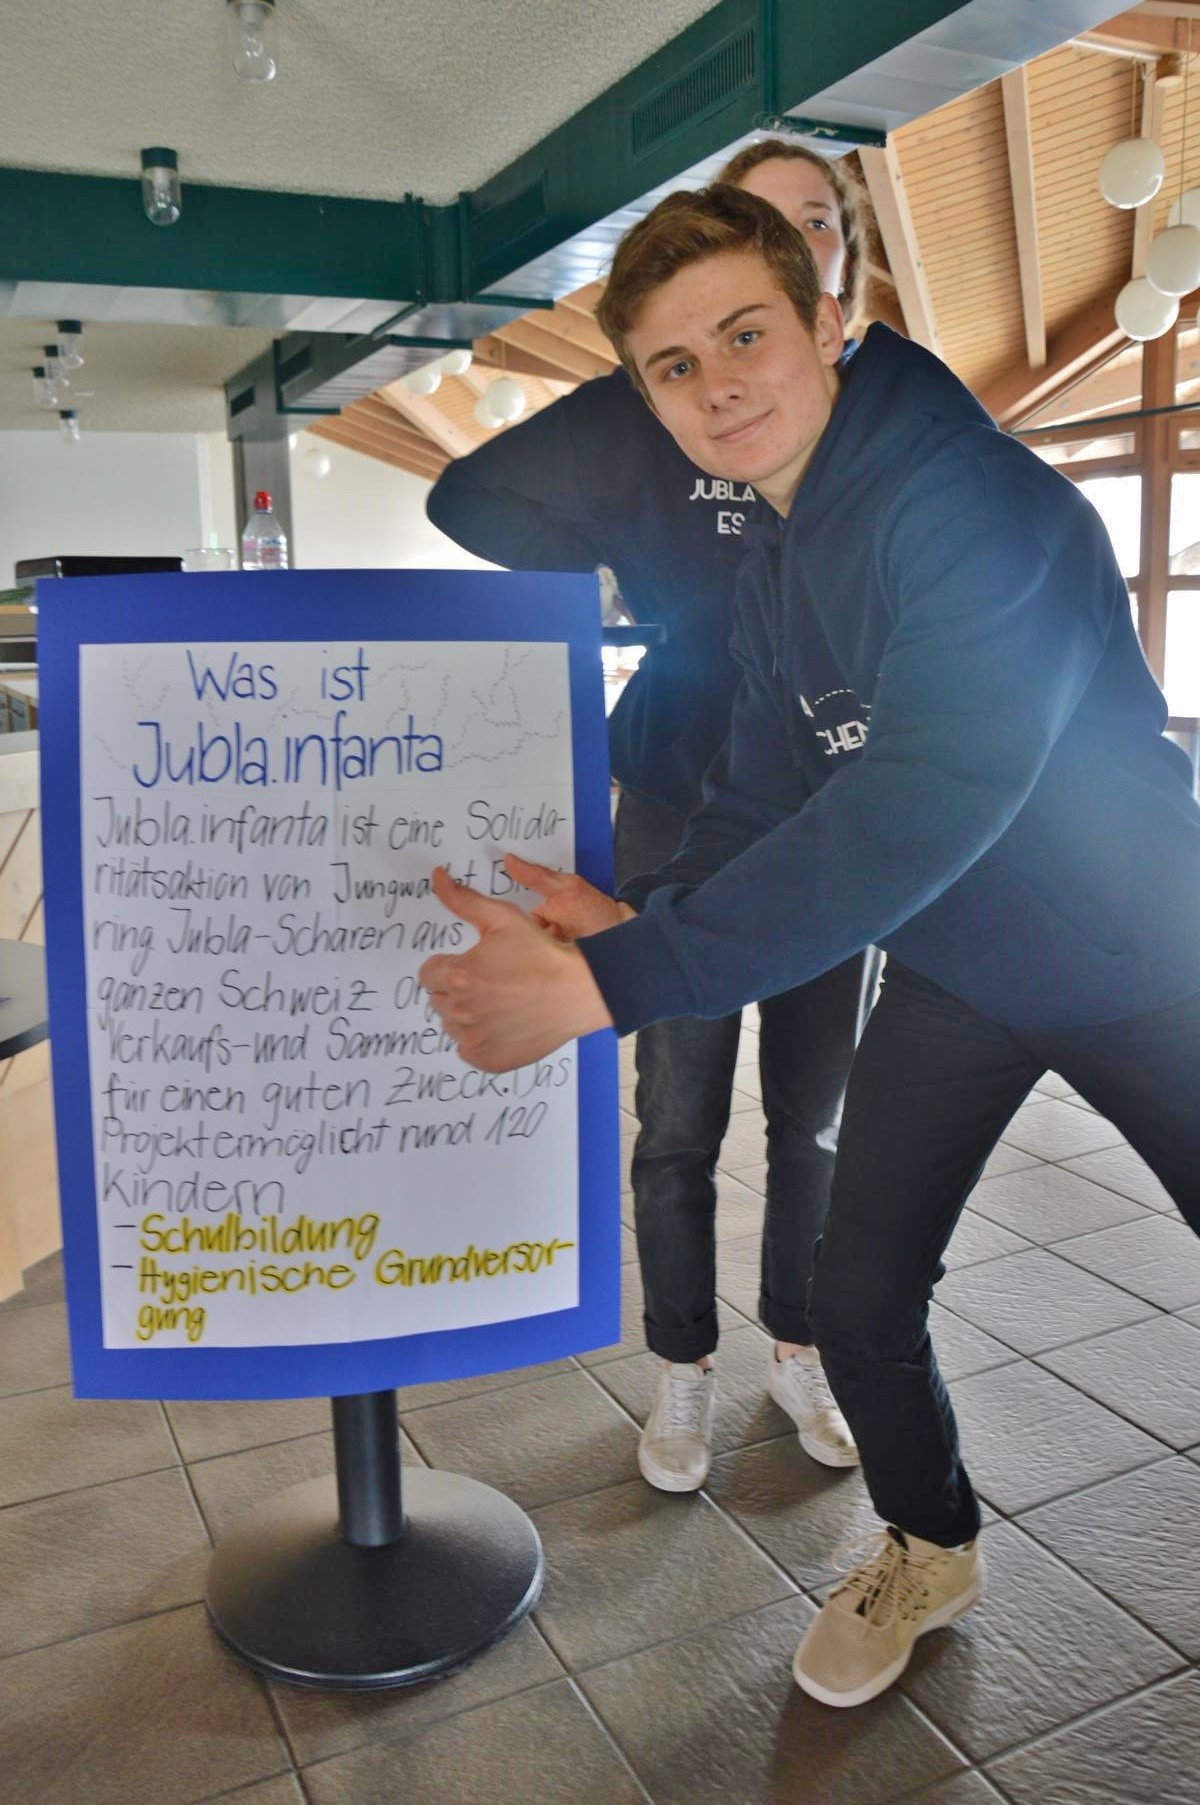 Was ist
Jubla.infanta
Jubla.infanta ist eine Solida-
ritätsaktion von
ring Jubla-Scharen aus
ganzen Schweiz
Verkaufs-und
für einen guten Zweck. Das
Projekt ermöglicht rund 120
Kindern
- Schulbildung
- Hygienische Grundversor-
gung
JUBLA
ES